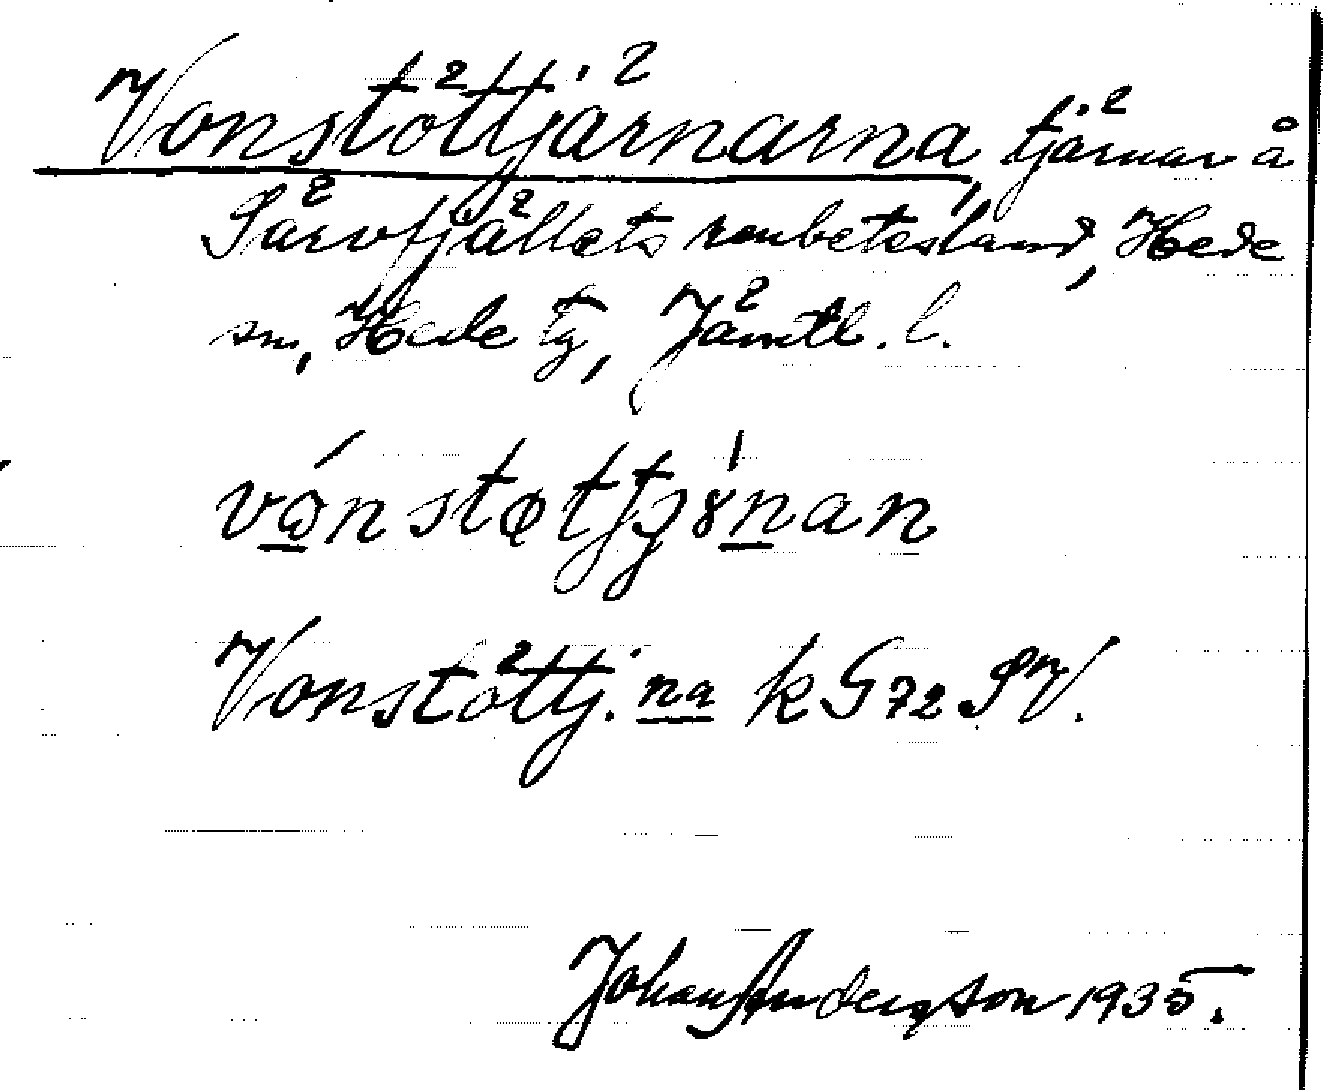 Vonstöttjärnarna, tjärnar å
Särvfjällets renbetesland, Hede
sn, Hede tg, Jämtl. l.
Vonstöttj. na k G 72 SV.
Johan Anderson 1935.